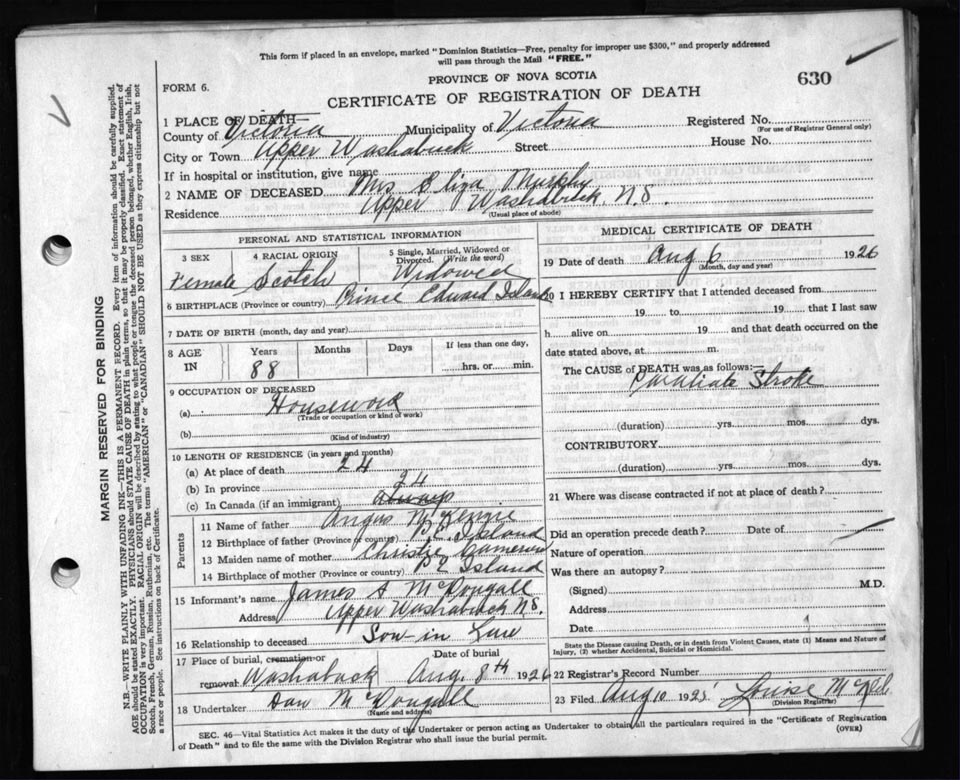 This form if placed in an envelope, marked "Dominion Statistics—Free, penalty for improper use $300," and properly addressed
will pass through the Mail "FREE."
FORM 6.
PROVINCE OF NOVA SCOTIA
630
CERTIFICATE OF REGISTRATION OF DEATH
1 PLACE OF DEATH—
County of Victoria Municipality of Victoria Registered No.
(For use of Registrar General only)
City or Town Upper Washabuck Street House No.
If in hospital or institution, give name
2 NAME OF DECEASED Mrs Eliza Murphy
Residence Upper Washabuck N.S.
(Usual place of abode)
PERSONAL AND STATISTICAL INFORMATION
3 SEX 4 RACIAL ORIGIN 5 Single, Married, Widowed or Divorced. (Write the word)
Female Scotch Widowed
6 BIRTHPLACE (Province or country) Prince Edward Island
7 DATE OF BIRTH (month, day and year)
8 AGE IN Years Months Days If less than one day,
88 hrs. or min.
9 OCCUPATION OF DECEASED
(a) Housework
(Trade or occupation or kind of work)
(b)
(Kind of industry)
10 LENGTH OF RESIDENCE (in years and months)
(a) At place of death 24
(b) In province 24
(c) In Canada (if an immigrant) always
Parents
11 Name of father Angus McKenzie
12 Birthplace of father (Province or country) P.E. Island
13 Maiden name of mother Christie Cameron
14 Birthplace of mother (Province or country) P E Island
15 Informant's name James A McDougall
Address Upper Washabuck N.S.
16 Relationship to deceased Son in Law
17 Place of burial, cremation or removal Date of burial
Washabuck Aug. 8th 1926
18 Undertaker Dan McDougall
(Name and address)
MEDICAL CERTIFICATE OF DEATH
19 Date of death Aug 6 1926
(Month, day and year)
20 I HEREBY CERTIFY that I attended deceased from
19 to 19 that I last saw
h alive on 19 and that death occurred on the
date stated above, at m.
The CAUSE of DEATH was as follows:—
Stroke
(duration) yrs. mos. dys.
CONTRIBUTORY
(duration) yrs. mos. dys.
21 Where was disease contracted if not at place of death?
Did an operation precede death? Date of
Nature of operation
Was there an autopsy?
(Signed) M.D.
Address
Date
State the Disease causing Death, or in death from Violent Causes, state (1) Means and Nature of
Injury, (2) whether Accidental, Suicidal or Homicidal.
22 Registrar's Record Number
23 Filed Aug 10 192 Louise
(Division Registrar)
SEC. 46—Vital Statistics Act makes it the duty of the Undertaker or person acting as Undertaker to obtain all the particulars required in the "Certificate of Registration
of Death" and to file the same with the Division Registrar who shall issue the burial permit.
(OVER)
MARGIN RESERVED FOR BINDING
N.B.—WRITE PLAINLY WITH UNFADING INK—THIS IS A PERMANENT RECORD. Every item of information should be carefully supplied.
AGE should be stated EXACTLY. PHYSICIANS should STATE CAUSE OF DEATH in plain terms, so that it may be properly classified. Exact statement of
OCCUPATION is very important. RACIAL ORIGIN will be described by stating to what people or tongue the deceased person belonged, whether English, Irish,
Scotch, French, German, Russian, Ruthenian, etc. The terms "AMERICAN" or "CANADIAN" SHOULD NOT BE USED as they express citizenship but not
a race or people. See instructions on back of Certificate.